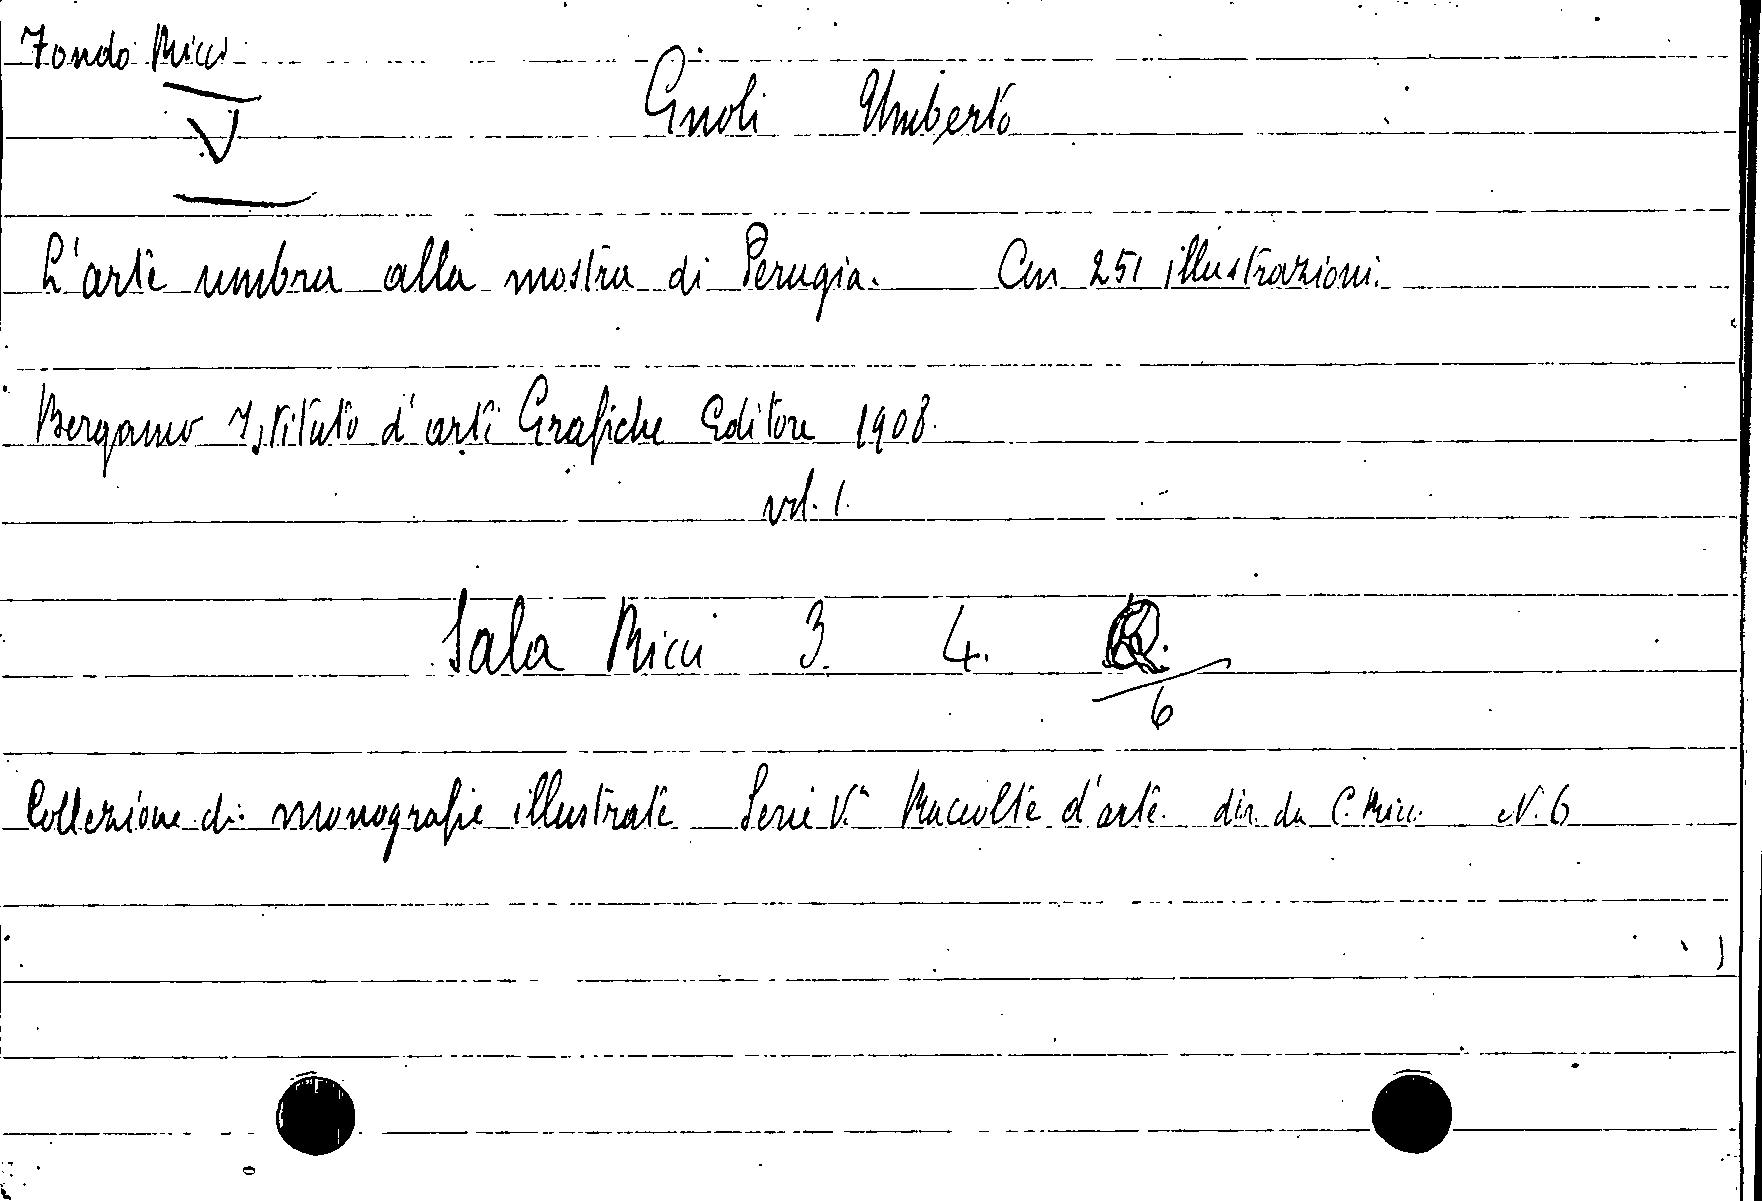 Fondo Ricci
V
Gnoli Umberto
L'arte umbra alla mostra di Perugia. Con 251 illustrazioni.
Bergamo Istituto d'arti Grafiche Editore 1908.
vol. 1.
Sala Ricci 3. 4.
6
Collezione di monografie illustrate Serie Vª Raccolte d'arte. dir. da C. Ricci N. 6